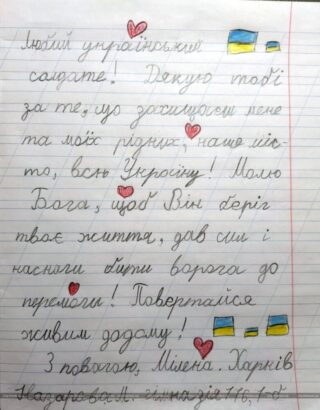 Любий український
солдате! Дякую тобі
за те, що захищаєш мене
та моїх рідних, наше міс-
то, всю Україну! Молю
Бога, щоб Він беріг
твоє життя, дав сил і
наснаги бити ворога до
перемоги! Повертайся
живим додому!
З повагою, Мілена. Харків
Назарова М. гімназія 116, 1-б